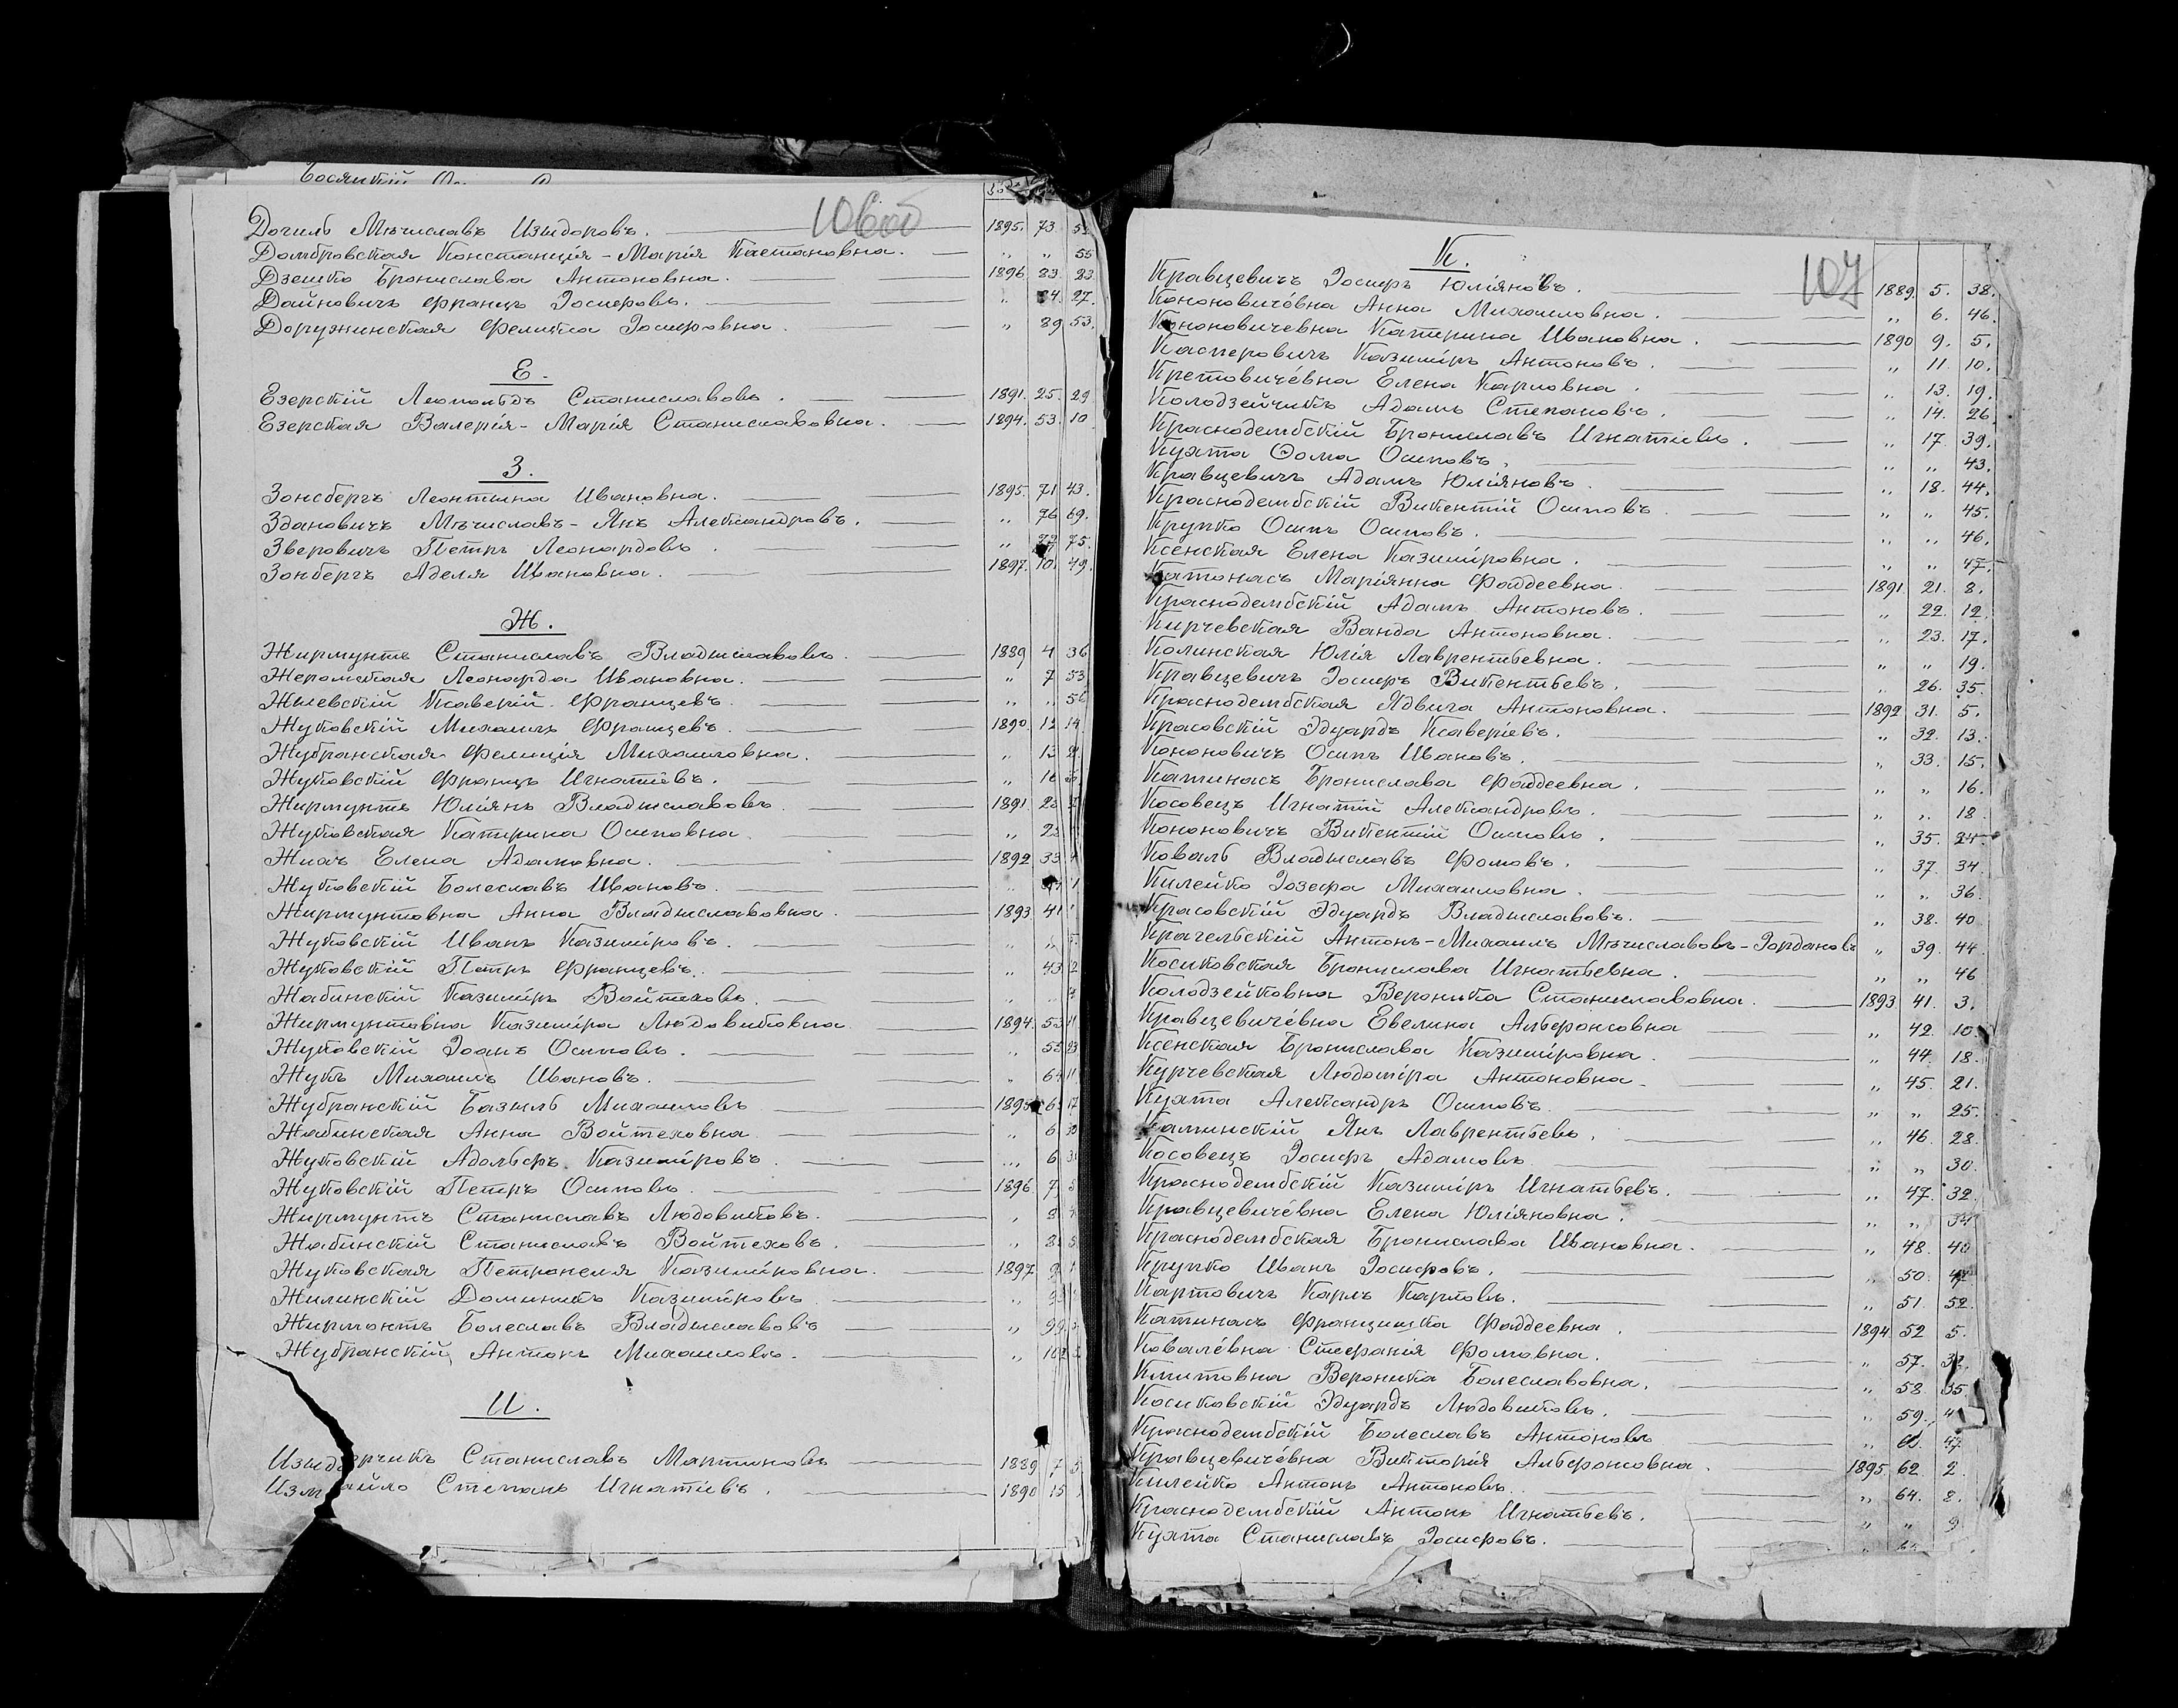 106об
Догиль Мѣчиславъ Изидоровъ. 1895. 73.
Домбровская Констанція-Марія Каетановна. „ „ 55
Дзешко Брониславa Антоновна. 1896 83. 23.
Дайновичъ Францъ Іосифовъ. „ 84. 27.
Доружинская Фелицка Іосифовна. „ 89 53.
Е.
Езерскій Леопольдъ Станиславовъ. 1891. 25. 29
Езерская Валерія-Марія Станиславовна. 1894. 53. 10
З.
Зонсбергъ Леонтина Ивановна. 1895. 71 43.
Здановичъ Мѣчиславъ-Янъ Александровъ. „ 76 69.
Зверовичъ Петръ Леонардовъ. „ 75.
Зонбергъ Аделя Ивановна. 1897. 10. 49.
Ж.
Жирмунтъ Станиславъ Владиславовъ. 1889 4 36
Жеромская Леонарда Ивановна. „ 7 53
Жилевскій Ксаверій Францевъ. „ „
Жуковскій Михаилъ Францевъ. 1890. 12 14
Жубранская Фелиція Михаиловна. „ 13
Жуковскій Францъ Игнатіевъ. „ 16
Жирмунтъ Юліянъ Владиславовъ. 1891.
Жуковская Катрина Осиповна. „
Жихъ Елена Адамовна. 1892 33
Жуковскій Болеславъ Ивановъ. „
Жирмунтовна Анна Владиславовна. 1893 41
Жуковскій Иванъ Казиміровъ. „ „
Жуковскій Петръ Францевъ. „ 43
Жабинскій Казиміръ Войтеховъ. „ „
Жирмунтовна Казиміра Людовиковна 1894. 53 11
Жуковскій Іоанъ Осиповъ. „ 55 23
Жукъ Михаилъ Ивановъ. „
Жубранскій Базиль Михаиловъ 1895 17
Жабинская Анна Войтеховна. „ 30
Жуковскій Адольфъ Казиміровъ. „
Жуковскій Петръ Осиповъ. 1896
Жирмунтъ Станиславъ Людовиковъ. „
Жабинскій Станиславъ Войтеховъ. „
Жуковская Петронеля Казиміровна. 1897
Жилинскій Доминикъ Казиміровъ „
Жирмонтъ Болеславъ Владиславовъ „ 99
Жубранскій Антонъ Михаиловъ. „ 102
И.
Изидорчикъ Станиславъ Мартиновъ 1889 7
Измайло Степанъ Игнатіевъ. 1890 15
107
К.
Кравцевичъ Іосифъ Юліяновъ. 1889. 5. 38.
Кононовичёвна Анна Михаиловна. „ 6. 46.
Кононовичевна Катрина Ивановна. 1890 9. 5.
Касперовичъ Казиміръ Антоновъ. „ 11. 10.
Кретовичёвна Елена Карловна. „ 13. 19.
Колодзейчикъ Адамъ Степановъ. „ 14. 26.
Краснодембскій Брониславъ Игнатіевъ. „ 17 39.
Кухта Ѳома Осиповъ. „ „ 43.
Кравцевичъ Адамъ Юліяновъ. „ 18. 44.
Краснодембскій Викентій Осиповъ. „ „ 45.
Крупко Осипъ Осиповъ. „ „ 46.
Ксенская Елена Казиміровна. „ „ 47.
Катонасъ Маріянна Фаддеевна. 1891 21. 8.
Краснодембскій Адамъ Антоновъ. „ 22. 12.
Кирчевская Ванда Антоновна. „ 23. 17.
Колинская Юлія Лаврентьевна. „ „ 19.
Кравцевичъ Іосифъ Викентьевъ. „ 26. 35.
Краснодембская Ядвига Антоновна. 1892 31. 5.
Красовскій Эдуардъ Ксаверіевъ. „ 32. 13.
Кононовичъ Осипъ Ивановъ. „ 33. 15.
Катинасъ Брониславa Фаддеевна. „ „ 16.
Косовецъ Игнатій Александровъ. „ „ 18
Кононовичъ Викентій Осиповъ. „ 35. 24.
Коваль Владиславъ Фомовъ. „ 37. 34.
Килейко Іозефа Михаиловна. „ „ 36.
Красовскій Эдуардъ Владиславовъ. „ 38. 40
Крагельскій Антонъ-Михаилъ Мѣчиславовъ-Іордановъ „ 39. 44.
Косиковская Брониславa Игнатьевна. „ „ 46
Колодзейковна Вероника Станиславовна. 1893 41. 3.
Кравцевичёвна Евелина Альфонсовна „ 42. 10.
Ксенская Брониславa Казиміровна. „ 44. 18.
Курчевская Людоміра Антоновна. „ 45. 21.
Кухта Александръ Осиповъ. „ „ 25.
Каминскій Янъ Лаврентьевъ. „ 46. 28.
Косовецъ Іосифъ Адамовъ „ „ 30.
Краснодембскій Казиміръ Игнатьевъ. „ 47. 32.
Кравцевичёвна Елена Юліяновна. „ „ 34
Краснодембская Брониславa Ивановна. „ 48. 40
Крупко Иванъ Іосифовъ. „ 50.
Картовичъ Карлъ Карловъ. „ 51. 52.
Катинасъ Францишка Фаддеевна. 1894 52 5.
Ковалёвна Стефанія Фомовна. „ 57.
Кмитовна Вероника Болеславовна. „ 58 35.
Косиковскій Эдуардъ Людовиковъ. „ 59.
Краснодембскій Болеславъ Антоновъ „ 47
Кравцевичёвна Викторія Альфонсовна. 1895. 62. 2.
Килейко Антонъ Антоновъ. „ 64. 8.
Краснодембскій Антонъ Игнатьевъ. „ „ 9
Кухта Станиславъ Іосифовъ. „